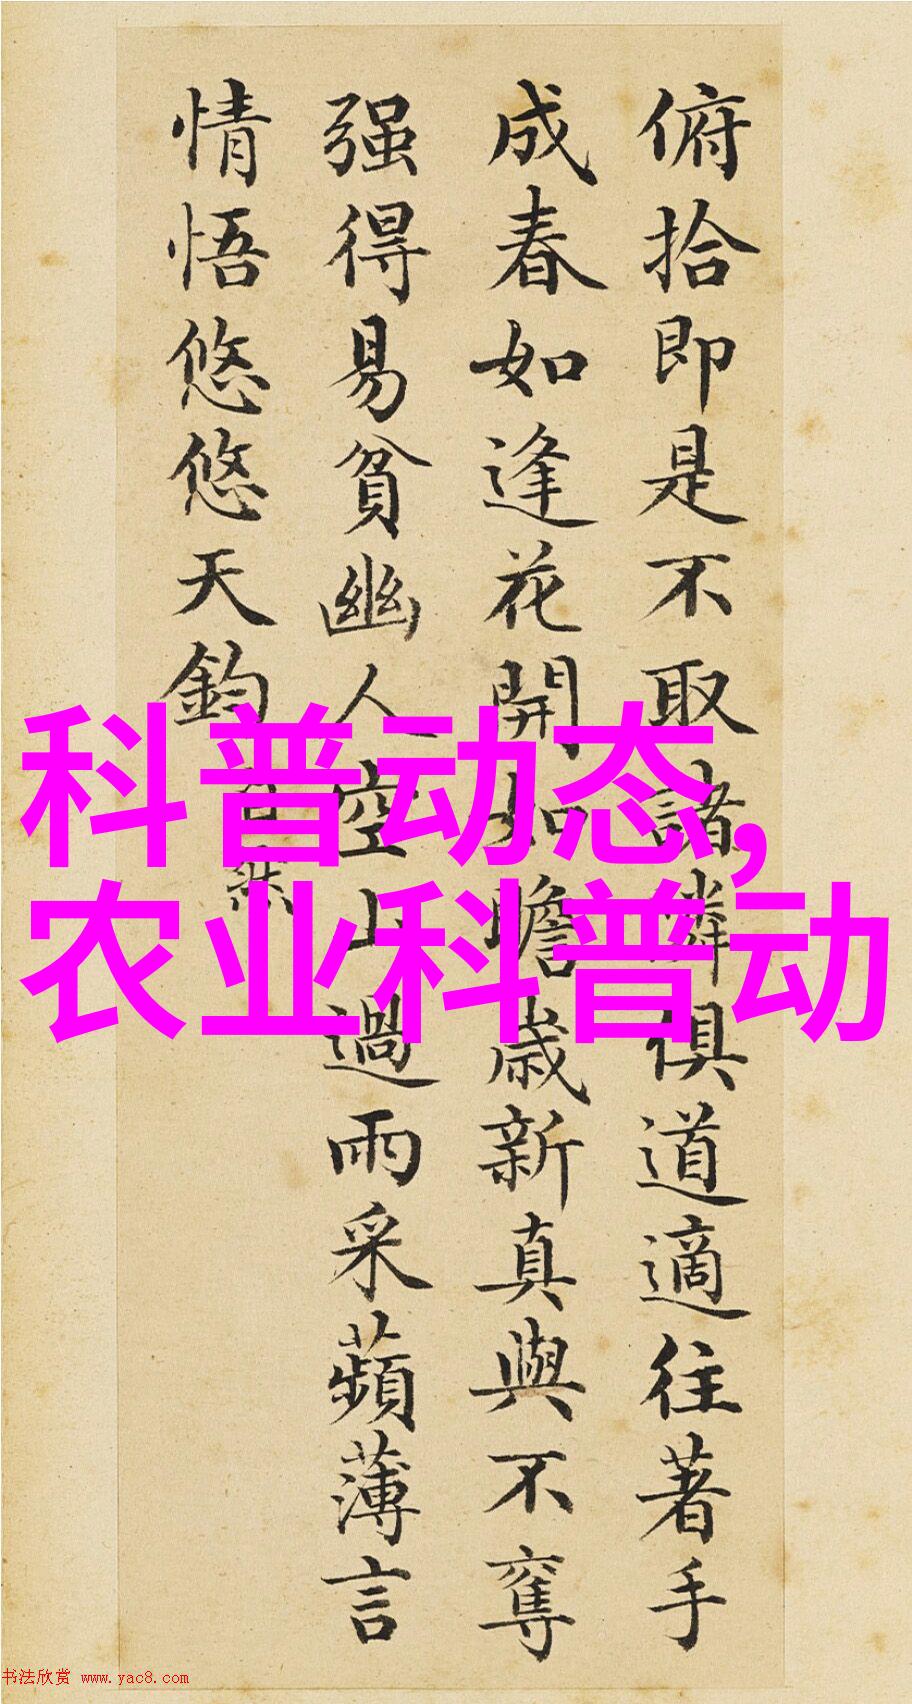 俯拾即是不取諸隣俱道適往著手
成春如逢花開如瞻歳新真與不奪
强得易貧幽人空山過雨采蘋薄言
情悟悠悠天鈞
科普动态,
农业科普动
书法欣赏 www.yac8.com